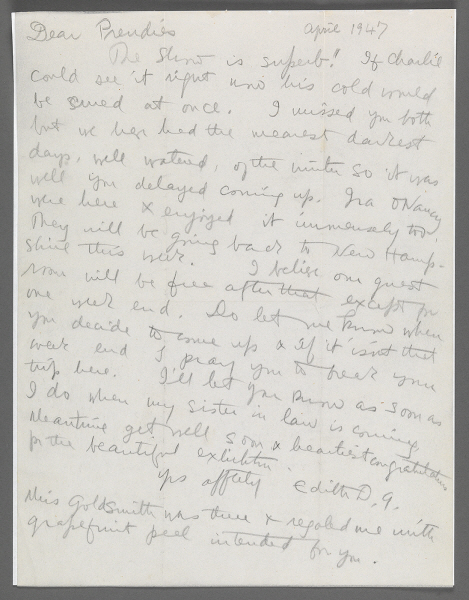 Dear Prendies April 1947
The Show is superb! If Charlie
could see it right now his cold would
be cured at once. I missed you both
but we have had the meanest darkest
days, well watered, of the winter so it was
well you delayed coming up. Ira & Nancy
were here & enjoyed it immensely too.
They will be going back to New Hamp-
shire this week. I believe our guest
room will be free after that except for
one week end. Do let me know when
you decide to come up & if it isn't that
week end I pray you to break your
trip here. I'll let you know as soon as
I do when my sister in law is coming.
Meantime get well soon & heartiest congratulations
for the beautiful exhibition.
Yrs affctly Edith D. G.
Miss Goldsmith was there & regaled me with
grapefruit peel intended for you.